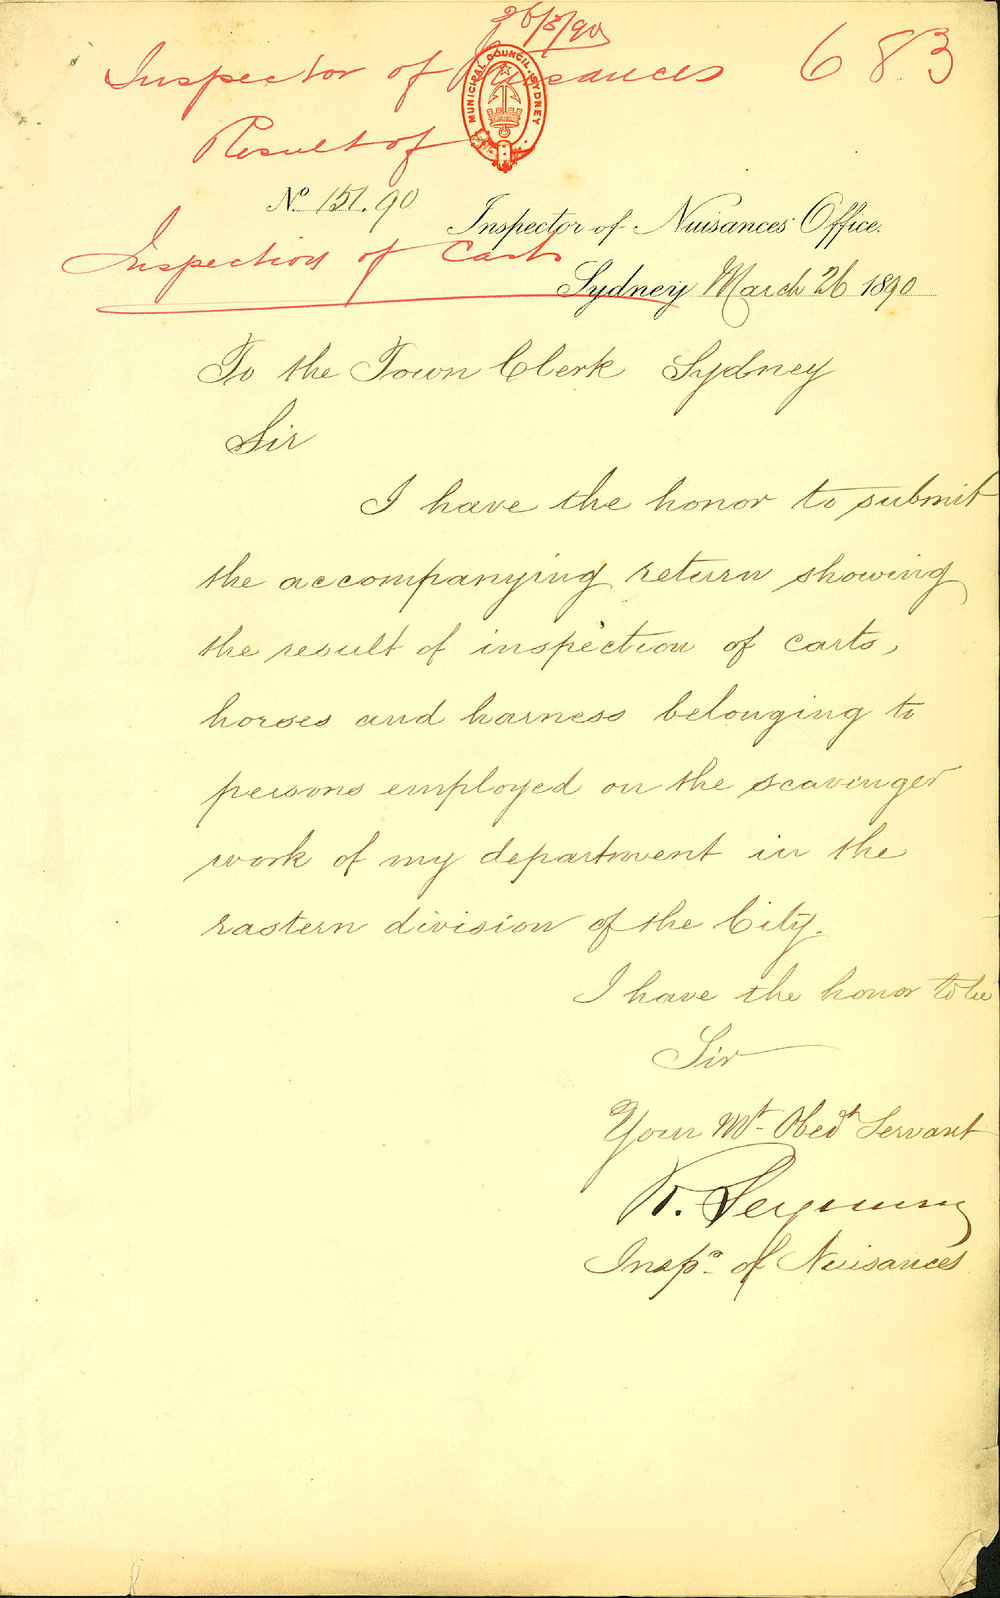 26/3/90
Inspector of Nuisances 683
MUNICIPAL COUNCIL, SYDNEY
Result of
No. 151.90
Inspector of Nuisances Office.
Inspection of Carts
Sydney March 26 1890
To the Town Clerk Sydney
Sir
I have the honor to submit
the accompanying return showing
the result of inspection of carts,
horses and harness belonging to
persons employed on the scavenger
work of my department in the
eastern division of the City.
I have the honor to be
Sir
Your Mt. Obedt Servant
R. Seymour
Inspr. of Nuisances